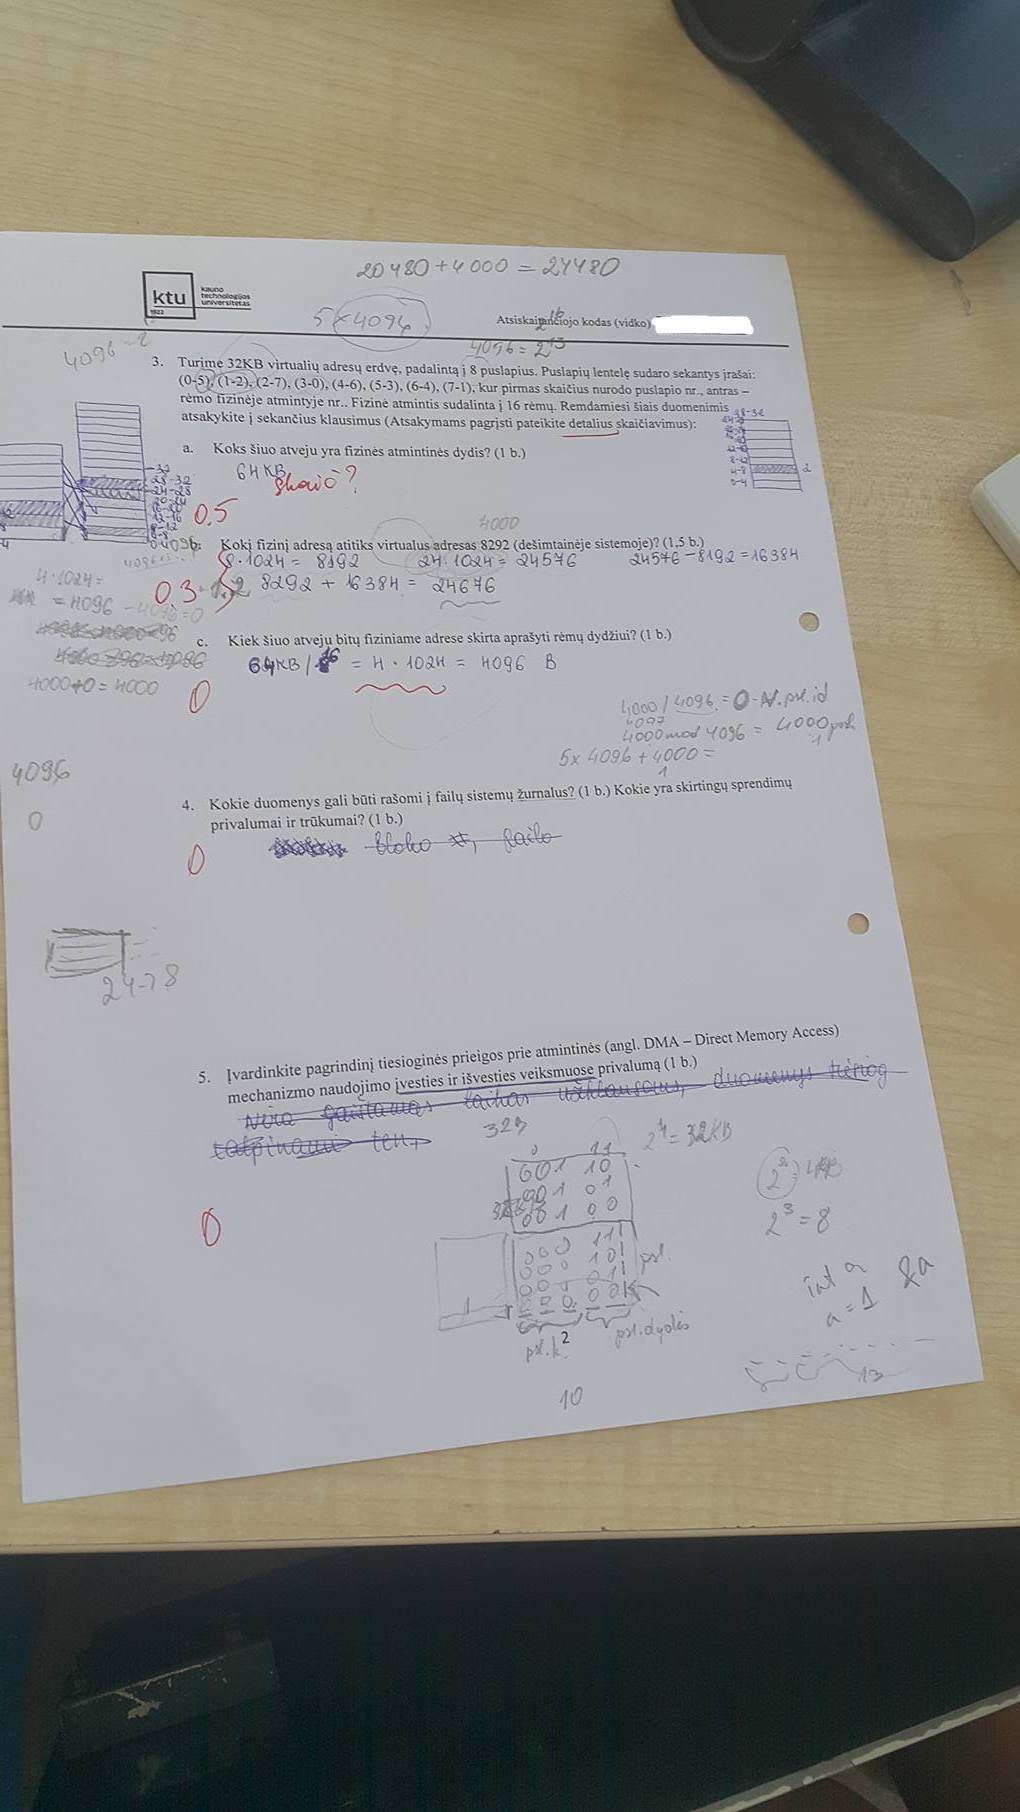 20480+4000 = 24480
ktu
1922
kauno
technologijos
universitetas
5 x 4096
Atsiskaitančiojo kodas (vidko)
16
4096 = 2^13
4096 - 2
3. Turime 32KB virtualių adresų erdvę, padalintą į 8 puslapius. Puslapių lentelę sudaro sekantys įrašai:
(0-5), (1-2), (2-7), (3-0), (4-6), (5-3), (6-4), (7-1), kur pirmas skaičius nurodo puslapio nr., antras –
rėmo fizinėje atmintyje nr.. Fizinė atmintis sudalinta į 16 rėmų. Remdamiesi šiais duomenimis
atsakykite į sekančius klausimus (Atsakymams pagrįsti pateikite detalius skaičiavimus):
28-32
a. Koks šiuo atveju yra fizinės atmintinės dydis? (1 b.)
64 KB
Skaič?
0.5
28-32
24-28
4000
b. Kokį fizinį adresą atitiks virtualus adresas 8292 (dešimtainėje sistemoje)? (1,5 b.)
8·1024 = 8192
24·1024 = 24576
24576 – 8192 = 16384
0.3
8292 + 16384 = 24676
4·1024 =
= 4096 - 4096 = 0
4000+0 = 4000
c. Kiek šiuo atveju bitų fiziniame adrese skirta aprašyti rėmų dydžiui? (1 b.)
64KB/16 = 4·1024 = 4096 B
0
4000 / 4096 = 0
4097
4000 mod 4096 = 4000
1
5x 4096 + 4000 =
1
4096
0
4. Kokie duomenys gali būti rašomi į failų sistemų žurnalus? (1 b.) Kokie yra skirtingų sprendimų
privalumai ir trūkumai? (1 b.)
bloko failo
0
24-28
5. Įvardinkite pagrindinį tiesioginės prieigos prie atmintinės (angl. DMA – Direct Memory Access)
mechanizmo naudojimo įvesties ir išvesties veiksmuose privalumą (1 b.)
Nėra gaištamas laikas užklausoms, duomenys tiesiog
talpinami ten,
329
2^4 = 32KB
0
11
001 10
001 01
001 00
000 111
000 101
000 011
psl.
psl. k.
psl. dydis
2^3 = 8
int a
a = 1
&a
13
0
2
10